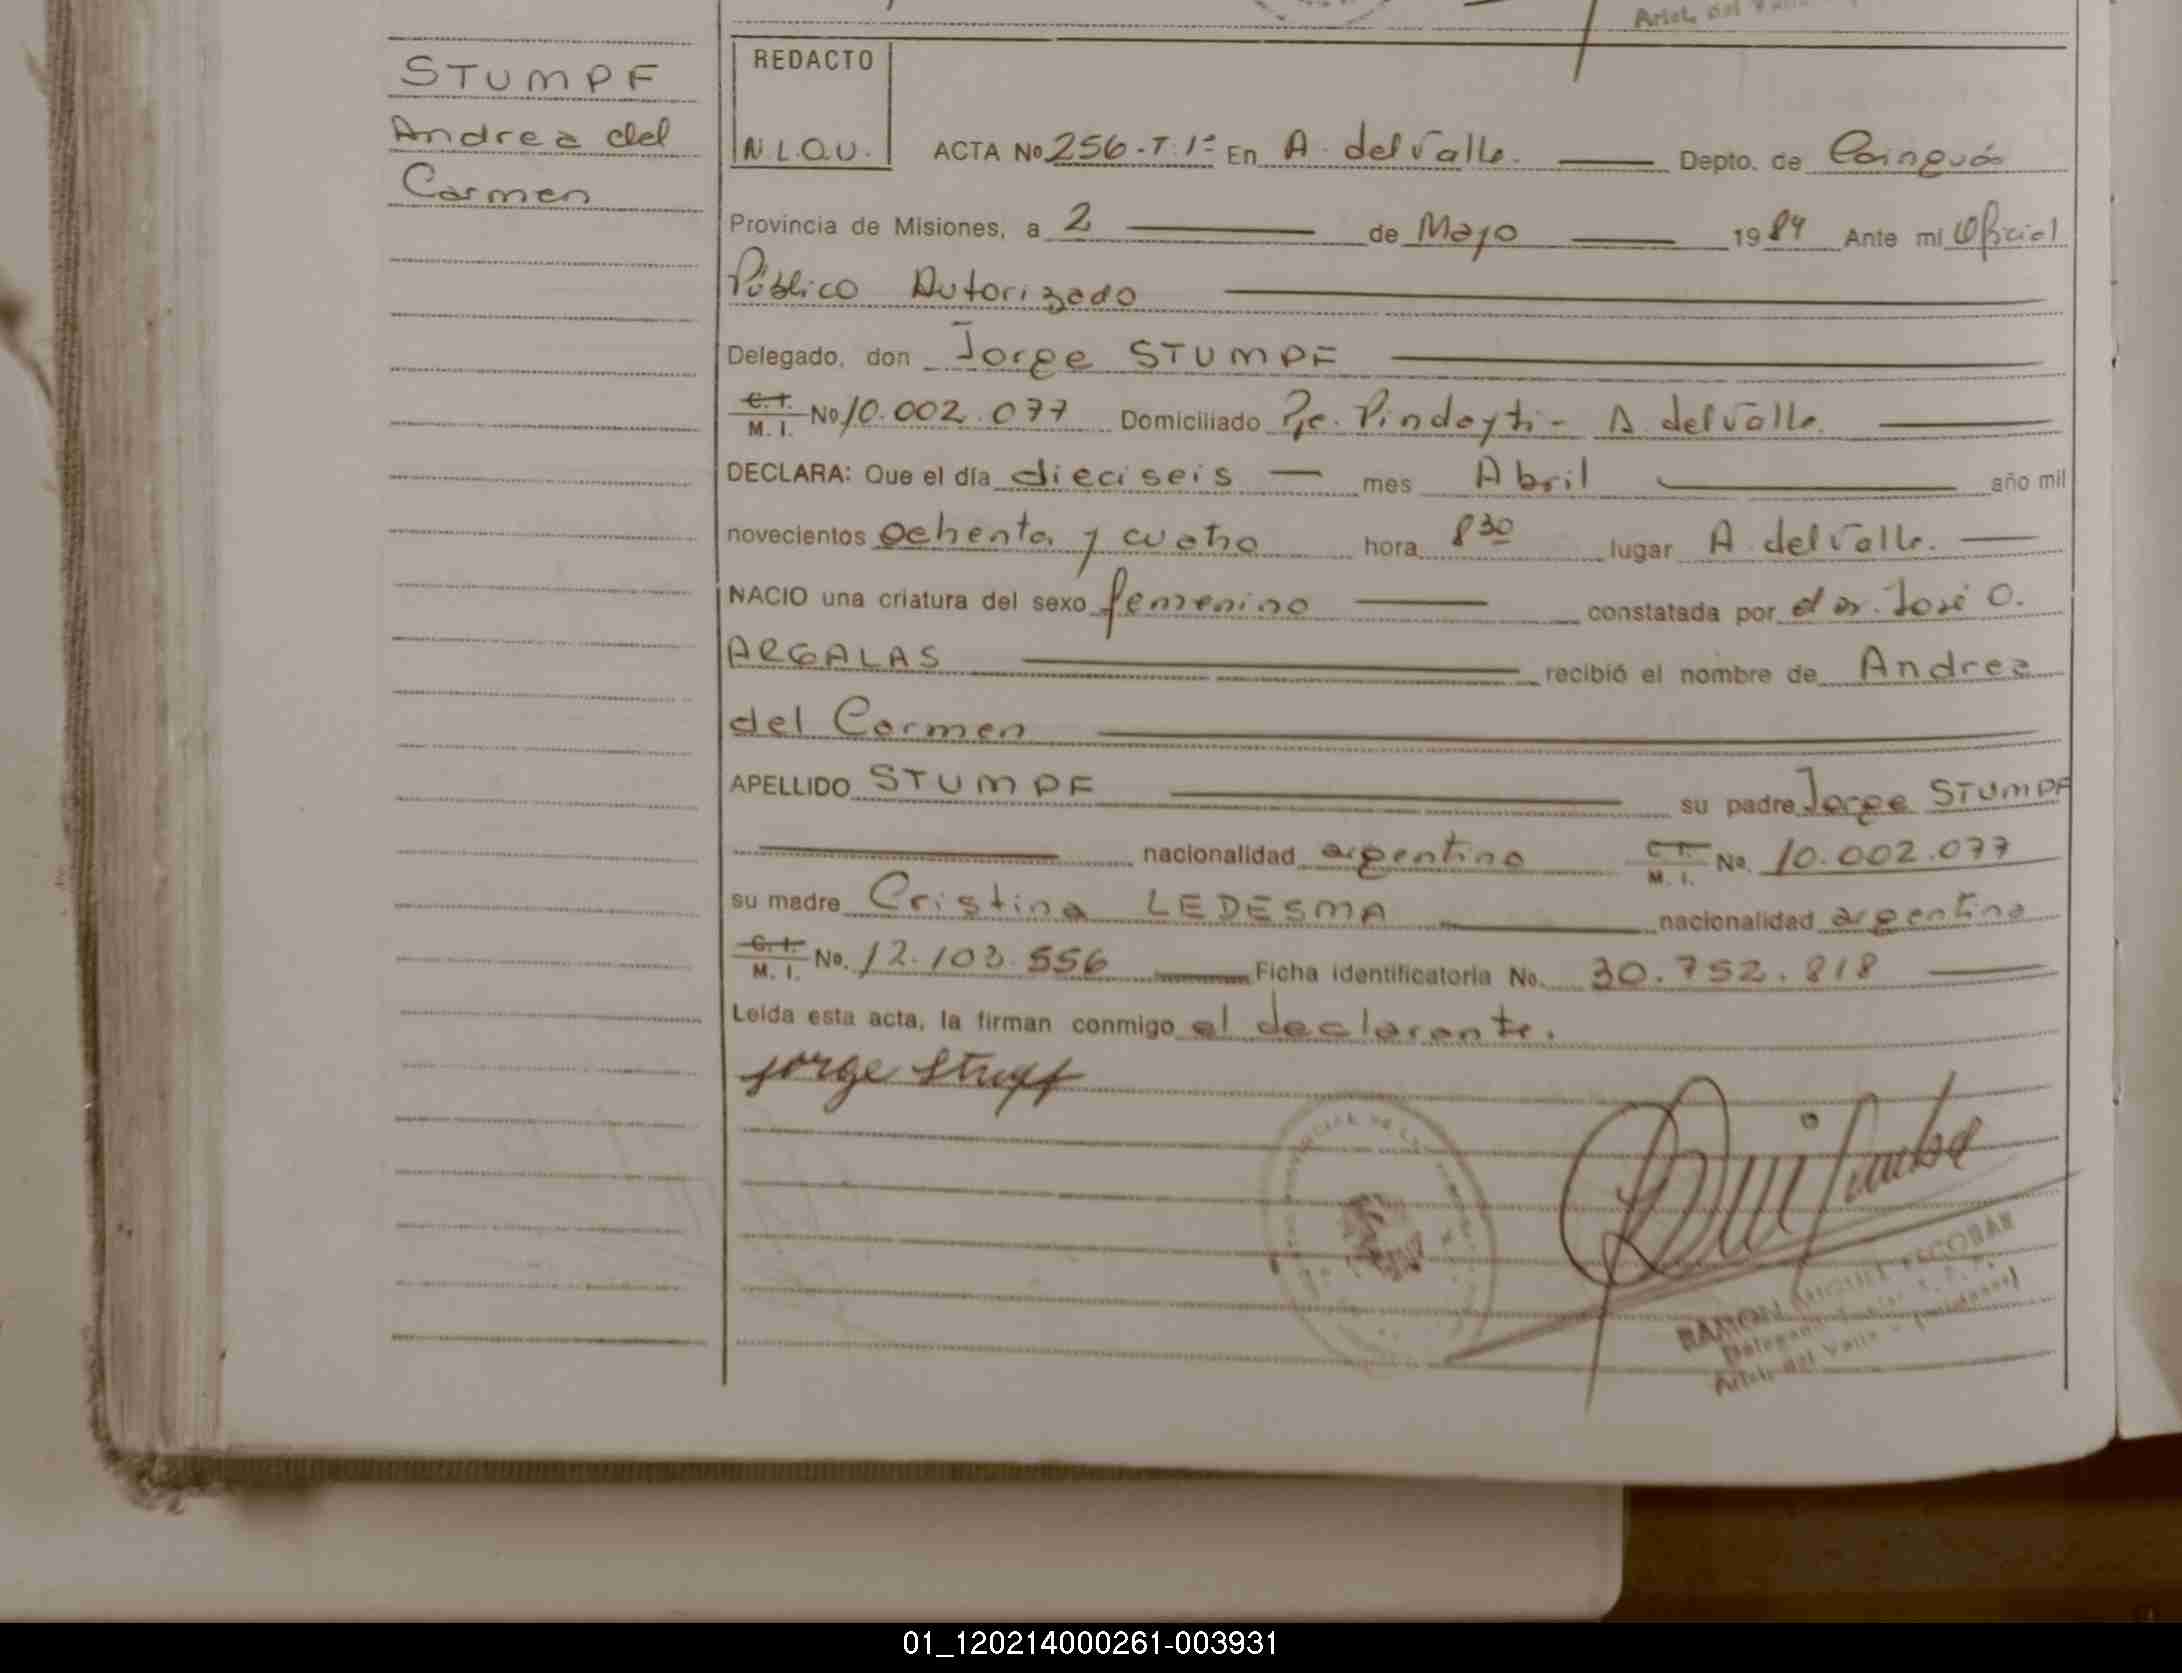 STUMPF
Andrea del
Carmen
REDACTO
N.L.O.U.
ACTA No 256-T.1º En A. del Valle. Depto. de Cainguás
Provincia de Misiones, a 2 de Mayo 1984 Ante mi Oficial
Público Autorizado
Delegado, don Jorge STUMPF
C.I. M.I. No 10.002.077 Domiciliado Pje. Pindayti - A. del Valle.
DECLARA: Que el día dieciseis mes Abril año mil
novecientos ochenta y cuatro hora 8 30 lugar A. del Valle.
NACIO una criatura del sexo femenino constatada por el dr. José O.
ARGALAS recibió el nombre de Andrea
del Carmen
APELLIDO STUMPF su padre Jorge STUMPF
nacionalidad argentino C.I. M.I. No. 10.002.077
su madre Cristina LEDESMA nacionalidad argentina
C.I. M.I. No. 12.103.556 Ficha identificatoria No. 30.752.818
Leida esta acta, la firman conmigo el declarante.
Jorge Stupf
RAMON MIGUEL ESCOBAR
Aristo. del Valle
01_120214000261-003931